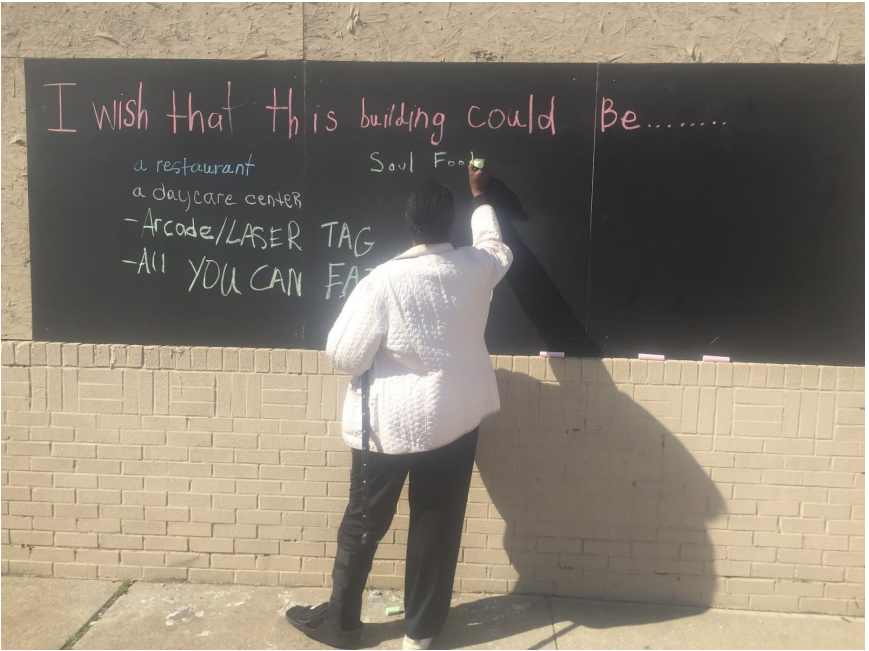 I wish that this building could Be........
a restaurant
a daycare center
-Arcade/LASER TAG
-All YOU CAN EAT
Soul Food